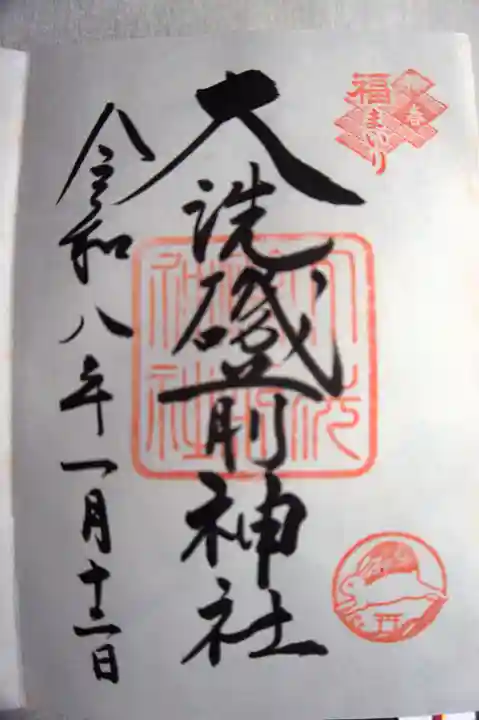 福まいり
大洗磯前神社
令和八年一月十二日